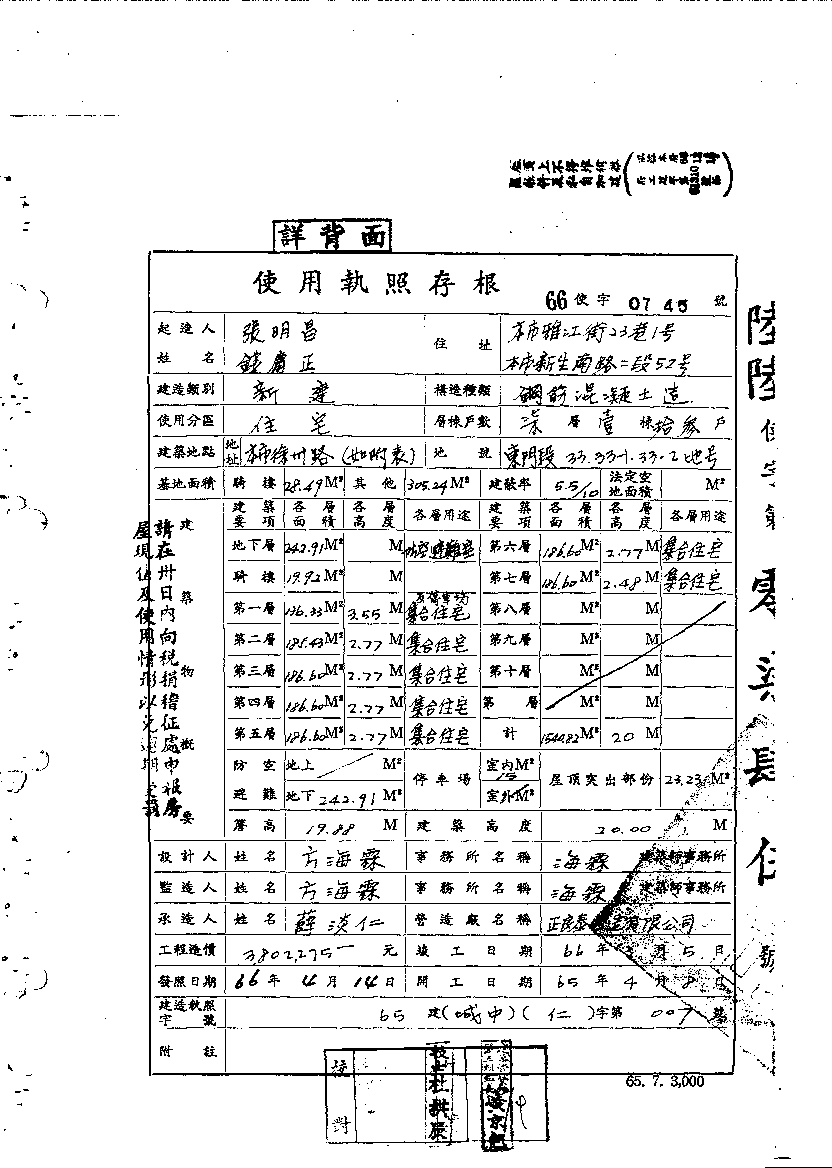 詳背面
使用執照存根
66 使字 0745 號
起造人
姓名
張明昌
正
住址
本市雅江街23巷1号
本市新生南路二段52号
建造類別 新建 構造種類 鋼筋混凝土造
使用分區 住宅 層棟戶數 柒層壹棟拾參戶
建築地點 地址 本市徐州路(如附表) 地號 東門段33.33-1.33-2地号
基地面積 騎樓 28.49M² 其他 305.24M² 建蔽率 5.5/10 法定空地面積 M²
建築物概要
建築要項 各層面積 各層高度 各層用途 建築要項 各層面積 各層高度 各層用途
地下層 242.91M² M 防空避難室 第六層 186.60M² 2.77M 集合住宅
騎樓 19.92M² M 第七層 186.60M² 2.48M 集合住宅
第一層 136.33M² 3.55M 集合住宅 第八層 M² M
第二層 185.43M² 2.77M 集合住宅 第九層 M² M
第三層 186.60M² 2.77M 集合住宅 第十層 M² M
第四層 186.60M² 2.77M 集合住宅 第 層 M² M
第五層 186.60M² 2.77M 集合住宅 計 1540.82M² 20M
防空避難 地上 M² 地下 242.91M² 停車場 室內M² 15 室外M² 屋頂突出部份 23.23M²
簷高 19.88M 建築高度 20.00M
設計人 姓名 方海霖 事務所名稱 海霖建築師事務所
監造人 姓名 方海霖 事務所名稱 海霖建築師事務所
承造人 姓名 薛淡仁 營造廠名稱 限公司
工程造價 3,802,275 元 竣工日期 66年 月5日
發照日期 66年4月14日 開工日期 65年4月8日
建造執照字號 65建(城中)(仁)字第007號
附註
校對
65. 7. 3,000
請在卅日內向稅捐稽征處申報房
屋現值及使用情形以免逾期受罰
陸陸使字第零柒肆伍號